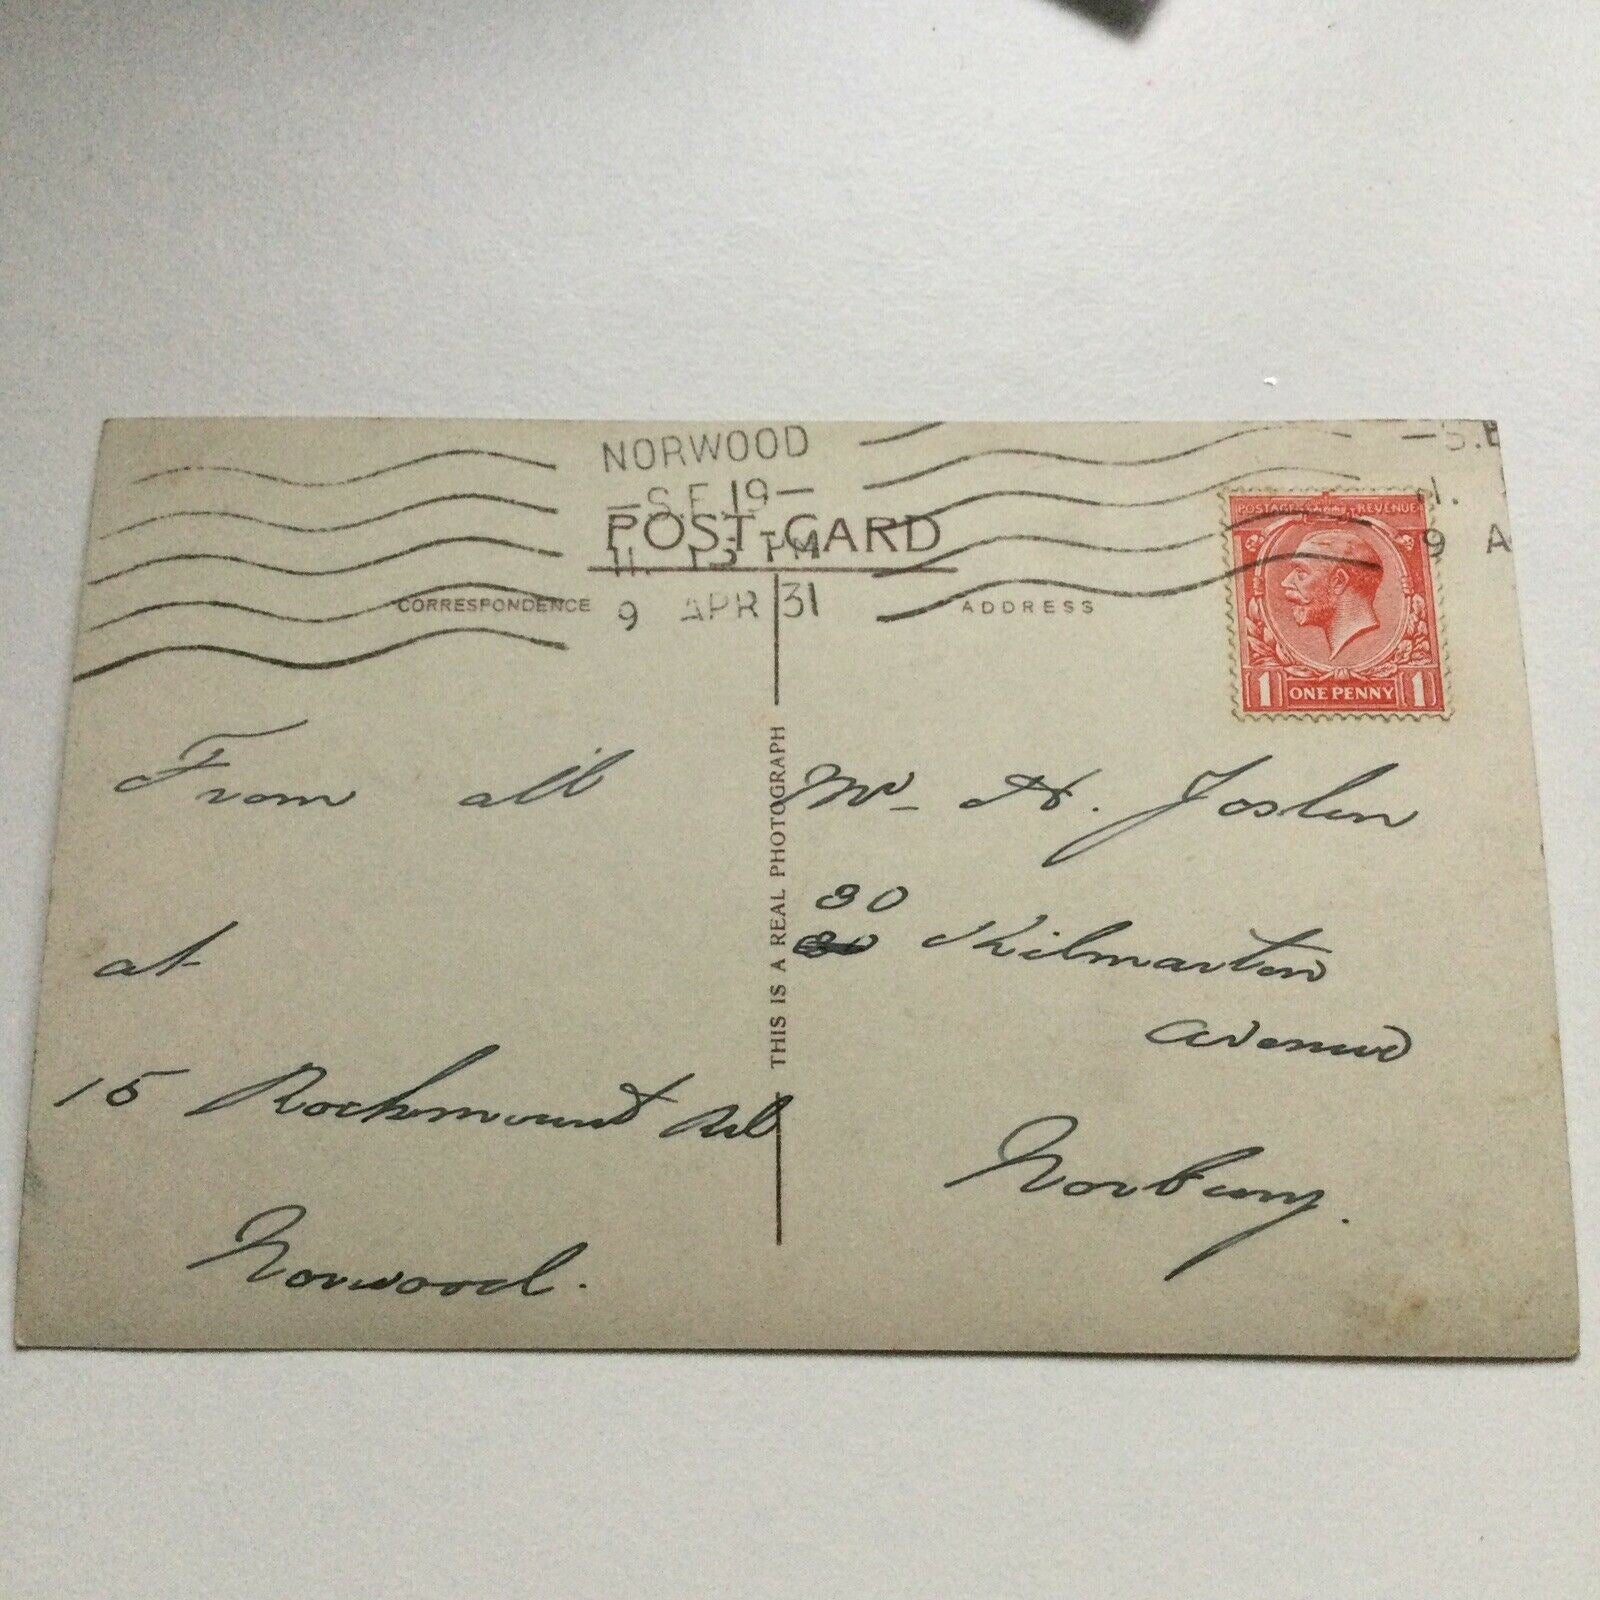 NORWOOD
—S.E.19—
POST CARD
11. 15 PM
9 APR 31
CORRESPONDENCE
ADDRESS
POSTAGE REVENUE
1 ONE PENNY 1
9 A
From all
at
15 Rockmount Rd
Norwood.
THIS IS A REAL PHOTOGRAPH
Mr H. Joslin
30
30 Kilmartin
Avenue
Norbury.